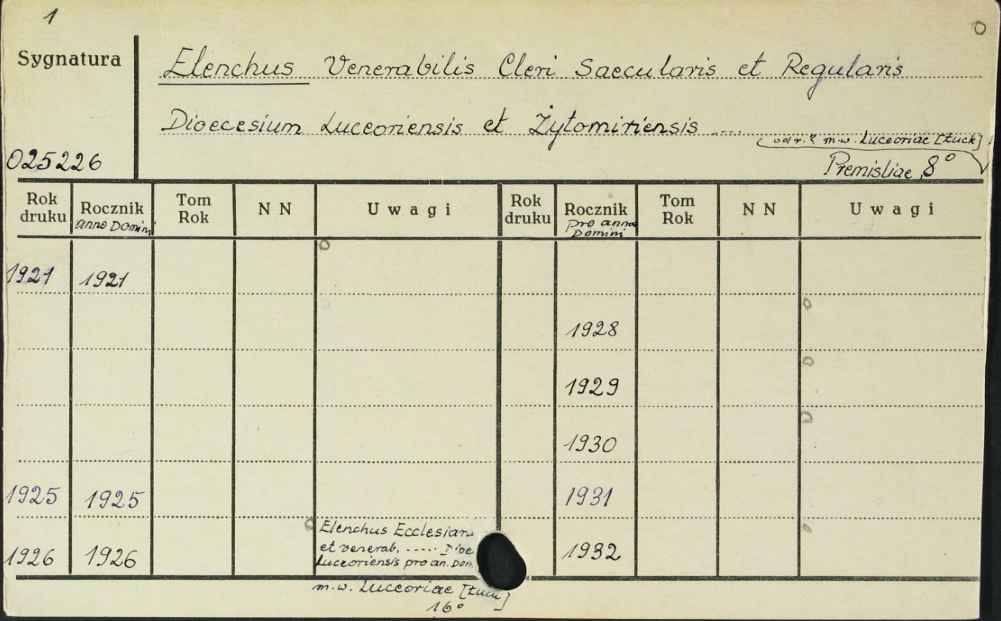 1
Sygnatura
Elenchus Venerabilis Cleri Saecularis et Regularis
Dioecesium Luceoriensis et Żytomiriensis ....
m.w. Luceoriae [Łuck]
025226
Premisliae, 8°
Rok druku Rocznik Tom Rok N N Uwagi Rok druku Rocznik Tom Rok N N Uwagi
anno Domini pro anno Domini
1921 1921
1928
1929
1930
1925 1925 1931
Elenchus Ecclesiaru
1926 1926 et venerab. ..... Dioe 1932
Luceoriensis pro an. Dom.
m.w. Luceoriae [Łuck]
16°